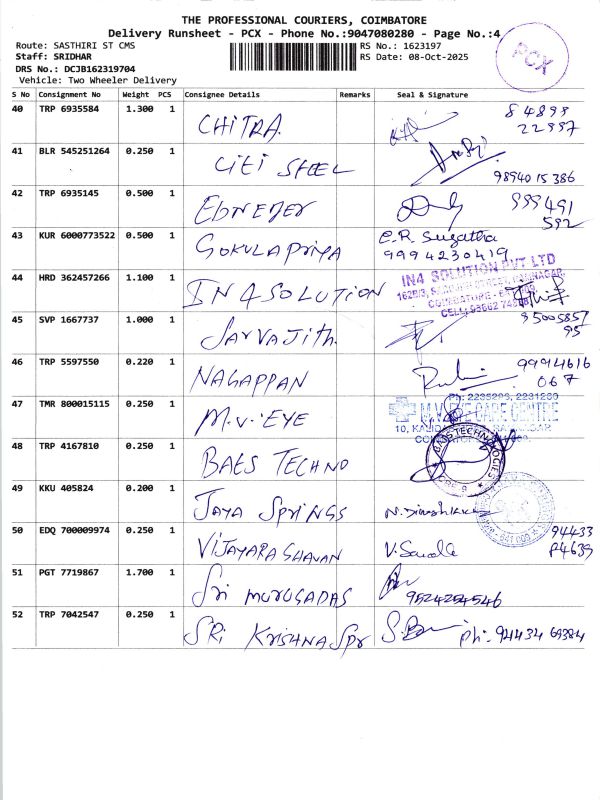 THE PROFESSIONAL COURIERS, COIMBATORE
Delivery Runsheet - PCX - Phone No.:9047080280 - Page No.:4
Route: SASTHIRI ST CMS RS No.: 1623197
Staff: SRIDHAR RS Date: 08-Oct-2025
DRS No.: DCJB162319704
Vehicle: Two Wheeler Delivery
PCX
S No Consignment No Weight PCS Consignee Details Remarks Seal & Signature
40 TRP 6935584 1.300 1 CHITRA 84899
22997
41 BLR 545251264 0.250 1 CITI STEEL
9894015386
42 TRP 6935145 0.500 1 EBNEZER 999491
592
43 KUR 6000773522 0.500 1 GOKULAPRIYA E.R. Sugatha
9994230419
44 HRD 362457266 1.100 1 IN 4 SOLUTION IN4 SOLUTION PVT LTD
45 SVP 1667737 1.000 1 SARVAJITH. 95005857
95
46 TRP 5597550 0.220 1 NAGAPPAN 9994616
067
47 TMR 800015115 0.250 1 M.V. EYE M.V. EYE CARE CENTRE
48 TRP 4167810 0.250 1 BAES TECHNO BAES TECHNOLOGIES
49 KKU 405824 0.200 1 JAYA SPRINGS
50 EDQ 700009974 0.250 1 VIJAYARAGHAVAN 94433
51 PGT 7719867 1.700 1 SRI MURUGADAS
9524254546
52 TRP 7042547 0.250 1 SRI KRISHNA SPR Ph: 94434 69384